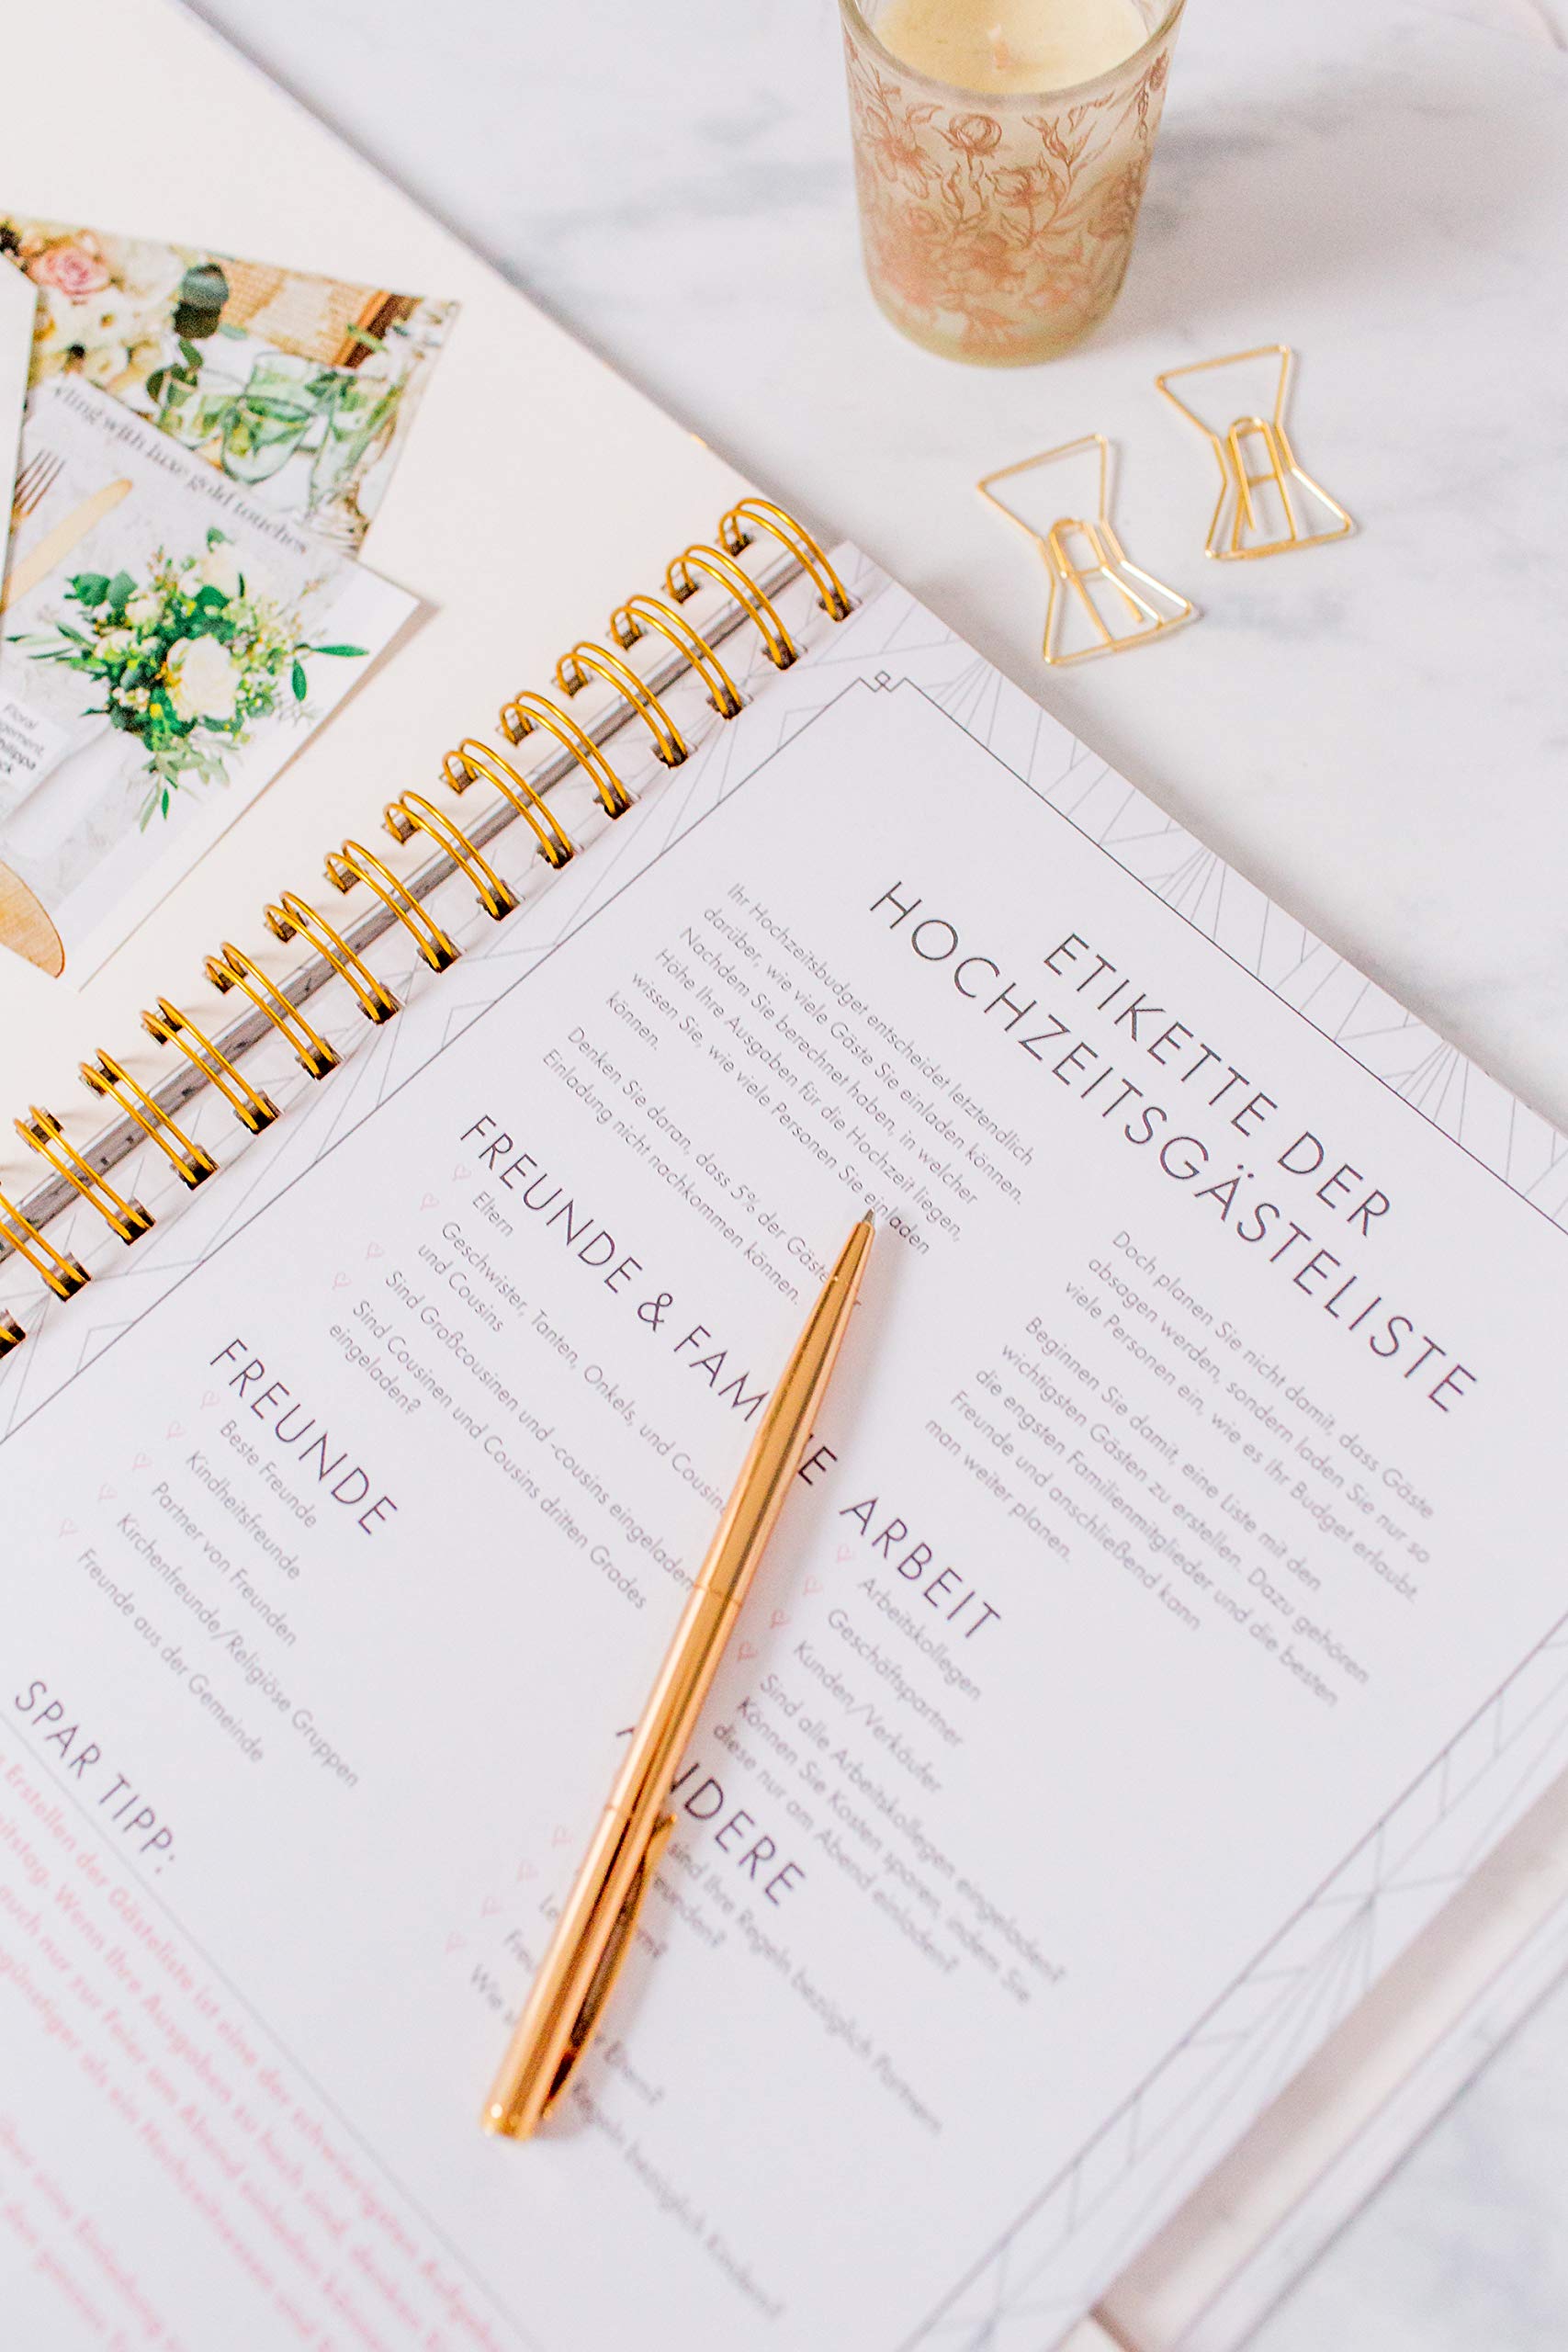 ling with luxe gold touches
Floral
ETIKETTE DER
HOCHZEITSGÄSTELISTE
Ihr Hochzeitsbudget entscheidet letztendlich
darüber, wie viele Gäste Sie einladen können.
Nachdem Sie berechnet haben, in welcher
Höhe Ihre Ausgaben für die Hochzeit liegen,
wissen Sie, wie viele Personen Sie einladen
können.
Denken Sie daran, dass 5% der Gäste
Einladung nicht nachkommen können.
Doch planen Sie nicht damit, dass Gäste
absagen werden, sondern laden Sie nur so
viele Personen ein, wie es Ihr Budget erlaubt.
Beginnen Sie damit, eine Liste mit den
wichtigsten Gästen zu erstellen. Dazu gehören
die engsten Familienmitglieder und die besten
Freunde und anschließend kann
man weiter planen.
FREUNDE & FAM IE
Eltern
Geschwister, Tanten, Onkels, und Cousin
und Cousins
Sind Großcousinen und -cousins eingeladen
Sind Cousinen und Cousins dritten Grades
eingeladen?
ARBEIT
Arbeitskollegen
Geschäftspartner
Kunden/Verkäufer
Sind alle Arbeitskollegen eingeladen?
Können Sie Kosten sparen, indem Sie
diese nur am Abend einladen?
FREUNDE
Beste Freunde
Kindheitsfreunde
Partner von Freunden
Kirchenfreunde/Religiöse Gruppen
Freunde aus der Gemeinde
ANDERE
sind Ihre Regeln bezüglich Partnern
Wie
Regeln bezüglich Kindern?
SPAR TIPP:
Erstellen der Gästeliste ist eine der schwierigsten Aufgab
Wenn Ihre Ausgaben zu hoch sind, denken
auch nur zur Feier am Abend einladen
günstiger als ein Hochzeitsessen und